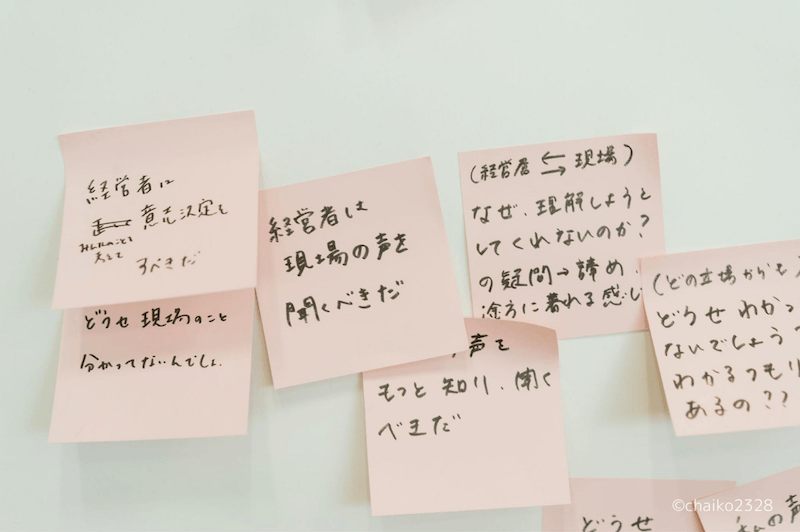 経営者は
意志決定を
みんなのことを
考えて
すべきだ
どうせ 現場のこと
分かってないんでしょ.
経営者は
現場の声を
聞くべきだ
声を
もっと知り、聞く
べきだ
(経営層 ⇄ 現場)
なぜ、理解しようと
してくれないのか?
の疑問→諦め、
途方に暮れる感じ
(どの立場からも
どうせ わかっ
ないでしょう
わかるつもり
あるの??
どうせ
の声
©chaiko2328